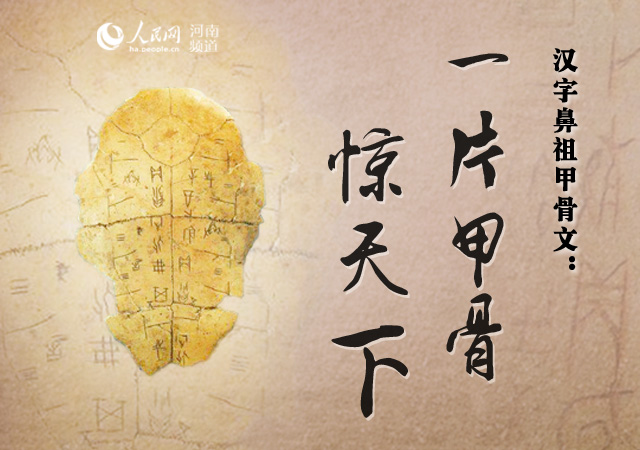 人民网
ha.people.cn
河南
频道
汉字鼻祖甲骨文：
一片甲骨
惊天下